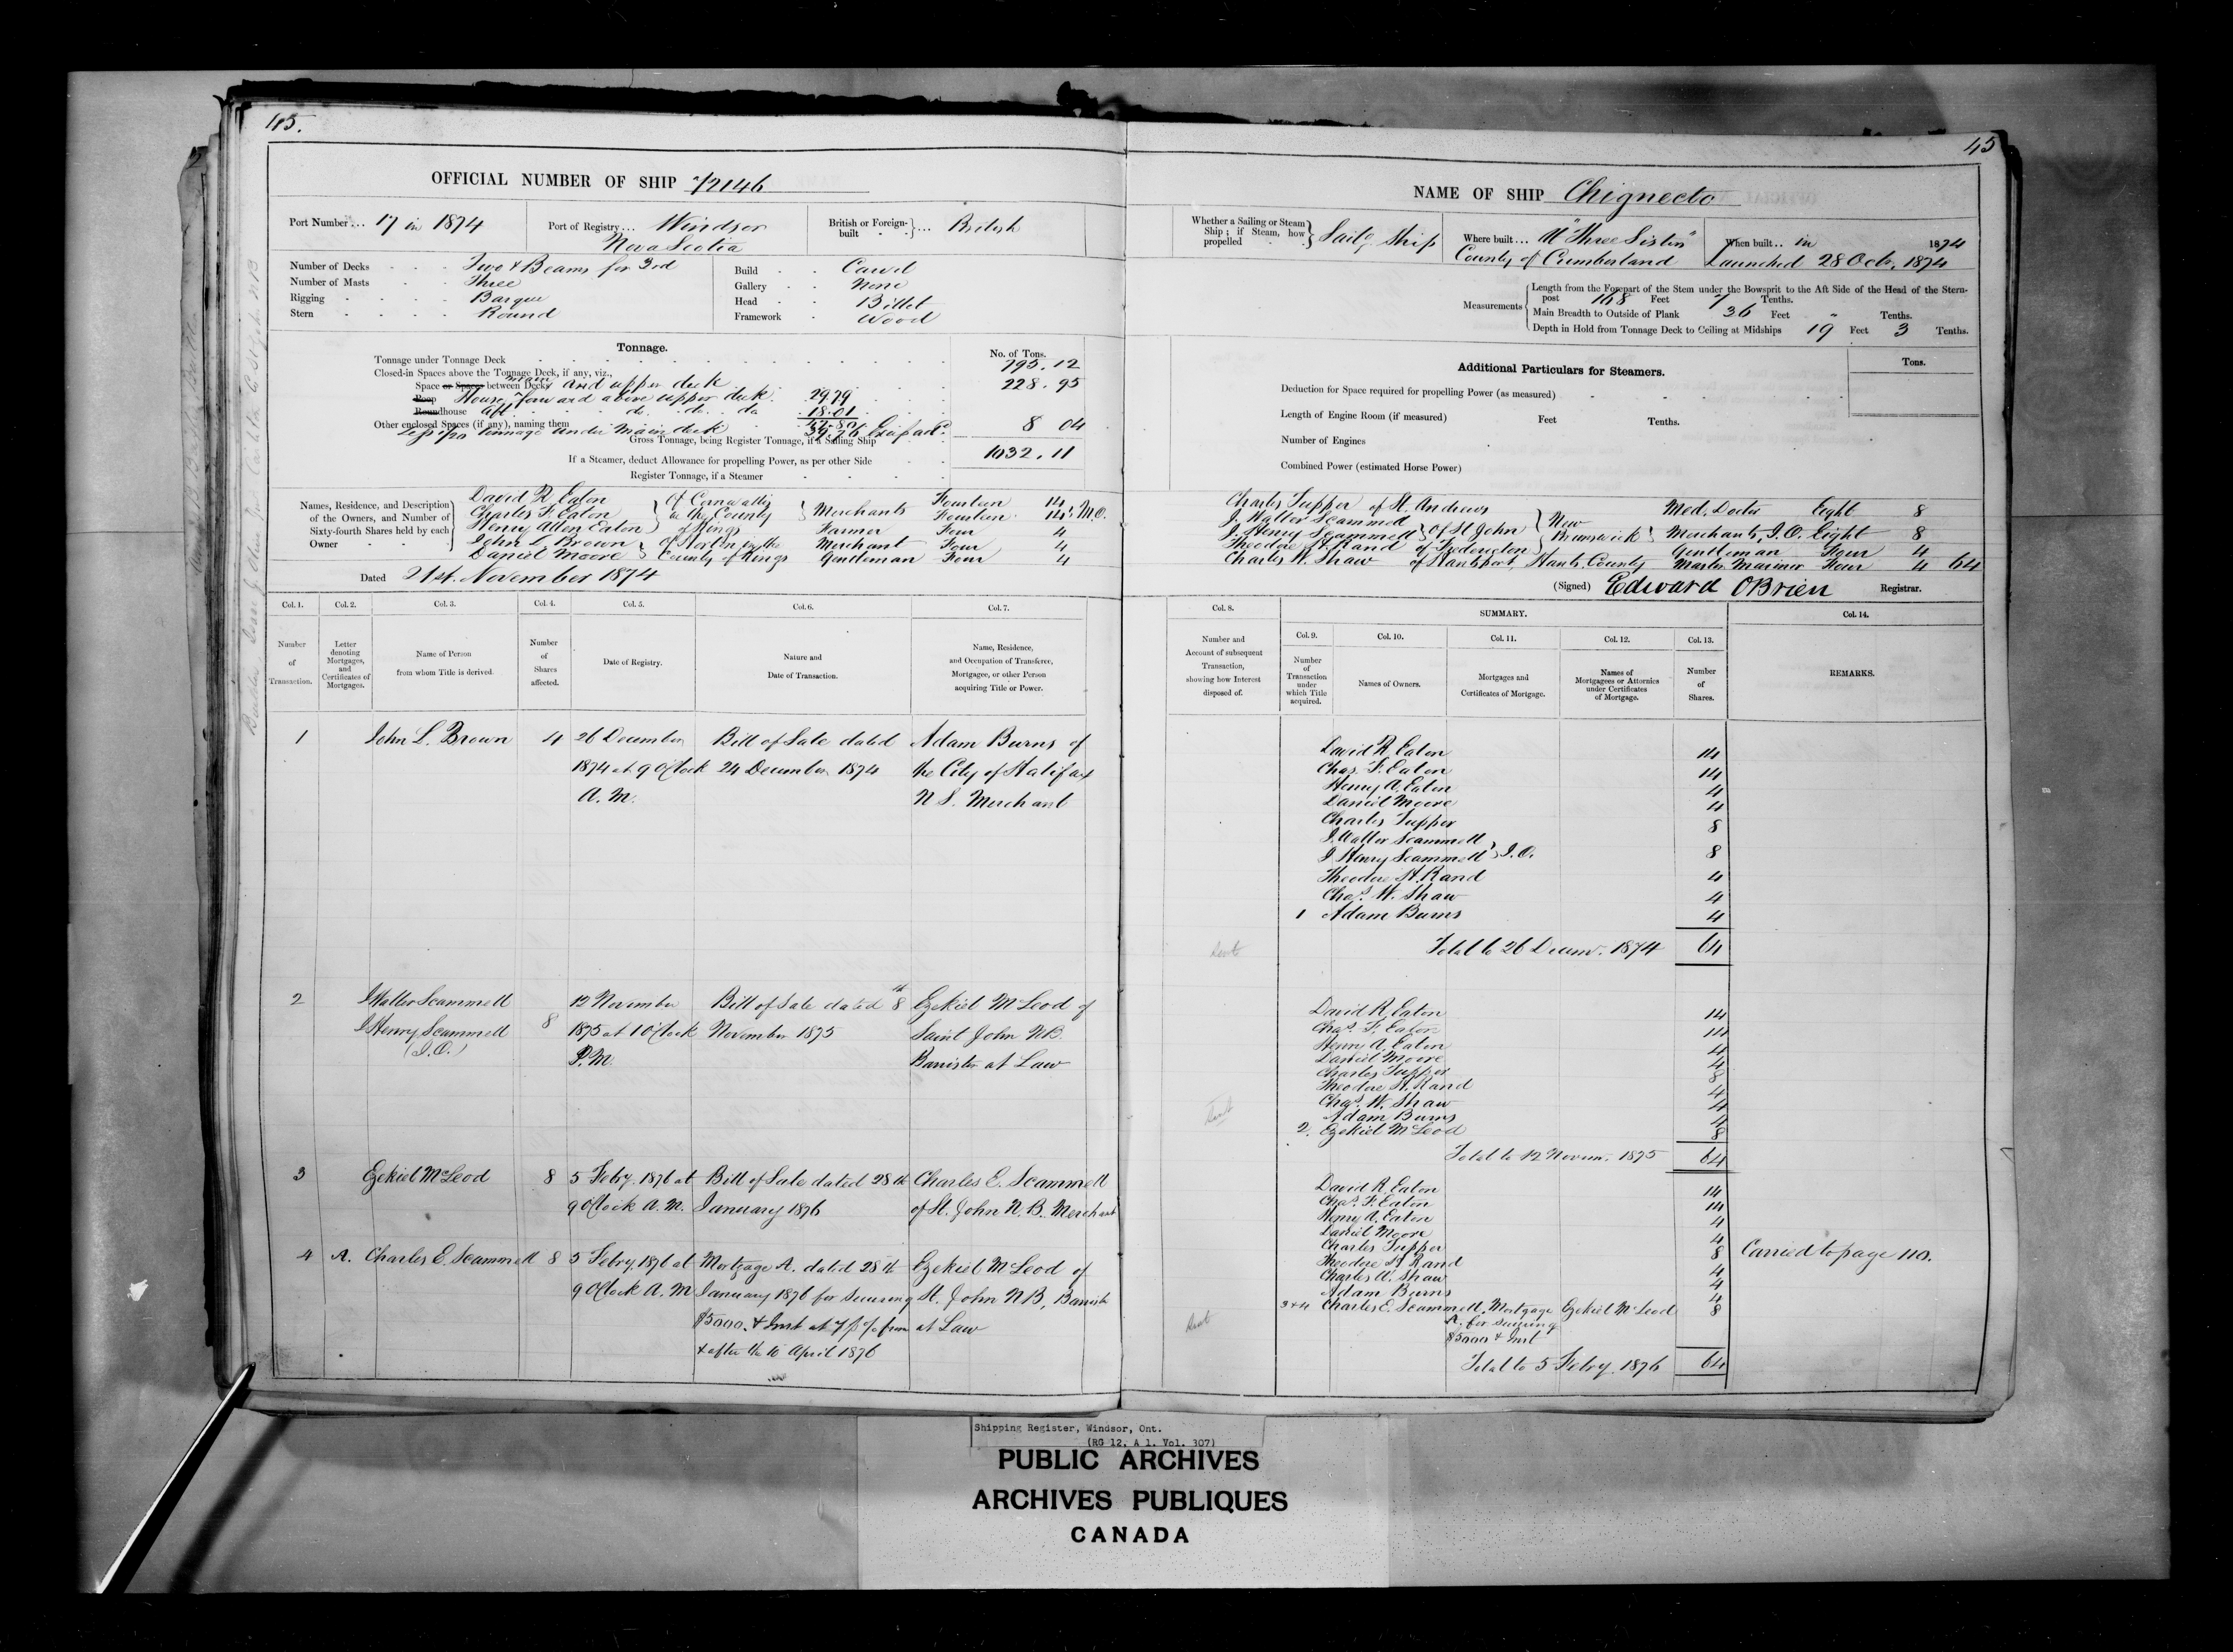 45.
OFFICIAL NUMBER OF SHIP 72146
Port Number... 17 in 1874
Port of Registry... Windsor
Nova Scotia
British or Foreign-built ... British
Number of Decks Two & Beams for 3rd
Number of Masts Three
Rigging Barque
Stern Round
Build Carvel
Gallery None
Head Billet
Framework Wood
Tonnage.
No. of Tons.
Tonnage under Tonnage Deck 795.12
Closed-in Spaces above the Tonnage Deck, if any, viz.,
Space or Space between Decks main and upper deck 228.95
Poop House forward above upper deck. 29.79
Roundhouse aft do. do. do 18.01
Other enclosed Spaces (if any), naming them 47.80
Less 1/20 tonnage under main deck 39.76 8 04
Gross Tonnage, being Register Tonnage, if a Sailing Ship 1032.11
If a Steamer, deduct Allowance for propelling Power, as per other Side
Register Tonnage, if a Steamer
Names, Residence, and Description of the Owners, and Number of Sixty-fourth Shares held by each Owner
David R Eaton
Charles F. Eaton
Henry Allen Eaton
of Cornwallis
in the County
of Kings
Merchants Fourteen 14
Fourteen 14 M.O.
Farmer Four 4
John L Brown
Daniel Moore
of Horton in the
County of Kings
Merchant Four 4
Gentleman Four 4
Dated 21st. November 1874
45
NAME OF SHIP Chignecto
Whether a Sailing or Steam Ship; if Steam, how propelled Sailg Ship
Where built... At "Three Sisters"
County of Cumberland
When built.. in 1874
Launched 28 Octr. 1874
Measurements
Length from the Forepart of the Stem under the Bowsprit to the Aft Side of the Head of the Stern-post 168 Feet 7 Tenths.
Main Breadth to Outside of Plank 36 Feet " Tenths.
Depth in Hold from Tonnage Deck to Ceiling at Midships 19 Feet 3 Tenths.
Additional Particulars for Steamers.
Tons.
Deduction for Space required for propelling Power (as measured)
Length of Engine Room (if measured) Feet Tenths.
Number of Engines
Combined Power (estimated Horse Power)
Charles Tupper of St. Andrews Med. Doctor Eight 8
J. Walter Scammell
J. Henry Scammell of St John New Brunswick Merchants, J.O. Eight 8
Theodore H. Rand of Fredericton Gentleman Four 4
Charles W. Shaw of Hantsport, Hants County Master Mariner Four 4 64
(Signed) Edward OBrien Registrar.
Col. 1. Col. 2. Col. 3. Col. 4. Col. 5. Col. 6. Col. 7.
Number of Transaction.
Letter denoting Mortgages, and Certificates of Mortgages.
Name of Person from whom Title is derived.
Number of Shares affected.
Date of Registry.
Nature and Date of Transaction.
Name, Residence, and Occupation of Transferee, Mortgagee, or other Person acquiring Title or Power.
1 John L. Brown 4 26 December Bill of Sale dated Adam Burns of
1874 at 9 O'Clock 24 December 1874 the City of Halifax
A.M. N S. Merchant
2 J Walter Scammell 12 November Bill of Sale dated 8th Ezekiel McLeod of
J Henry Scammell 8 1875 at 1 O'Clock November 1875 Saint John NB.
(J.O.) P.M. Barrister at Law
3 Ezekiel McLeod 8 5 Febry. 1876 at Bill of Sale dated 28th Charles E. Scammell
9 O'Clock A.M. January 1876 of St. John N.B. Merchant
4 A. Charles E. Scammell 8 5 Febry. 1876 at Mortgage A. dated 28th Ezekiel McLeod of
9 O'Clock A.M January 1876 for securing St. John NB, Barrister
$5000. & Inst at 7 p % from at Law
& after the 10 April 1876
Col. 8. SUMMARY. Col. 14.
Col. 9. Col. 10. Col. 11. Col. 12. Col. 13.
Number and Account of subsequent Transaction, showing how Interest disposed of.
Number of Transaction under which Title acquired.
Names of Owners.
Mortgages and Certificates of Mortgage.
Names of Mortgagees or Attornies under Certificates of Mortgage.
Number of Shares.
REMARKS.
David R. Eaton 14
Chas. F. Eaton 14
Henry A. Eaton 4
Daniel Moore 4
Charles Tupper 8
J. Walter Scammell
J Henry Scammell J.O. 8
Theodore H. Rand 4
Chas. W. Shaw 4
1 Adam Burns 4
Total to 26 Decemr. 1874 64
David R. Eaton 14
Chas. F. Eaton 14
Henry A. Eaton 4
Daniel Moore 4
Charles Tupper 8
Theodore H. Rand 4
Chas. W. Shaw 4
Adam Burns 4
2. Ezekiel McLeod 8
Total to 12 Novem. 1875 64
David R. Eaton 14
Chas. F. Eaton 14
Henry A. Eaton 4
Daniel Moore 4
Charles Tupper 8
Theodore H Rand 4
Charles W. Shaw 4
Adam Burns 4
3+4 Charles E. Scammell. Mortgage Ezekiel McLeod 8
A. for securing
$5000 & Inst
Total to 5 Febry. 1876 64
Carried to page 110.
Shipping Register, Windsor, Ont.
(RG 12, A 1, Vol. 307)
PUBLIC ARCHIVES
ARCHIVES PUBLIQUES
CANADA